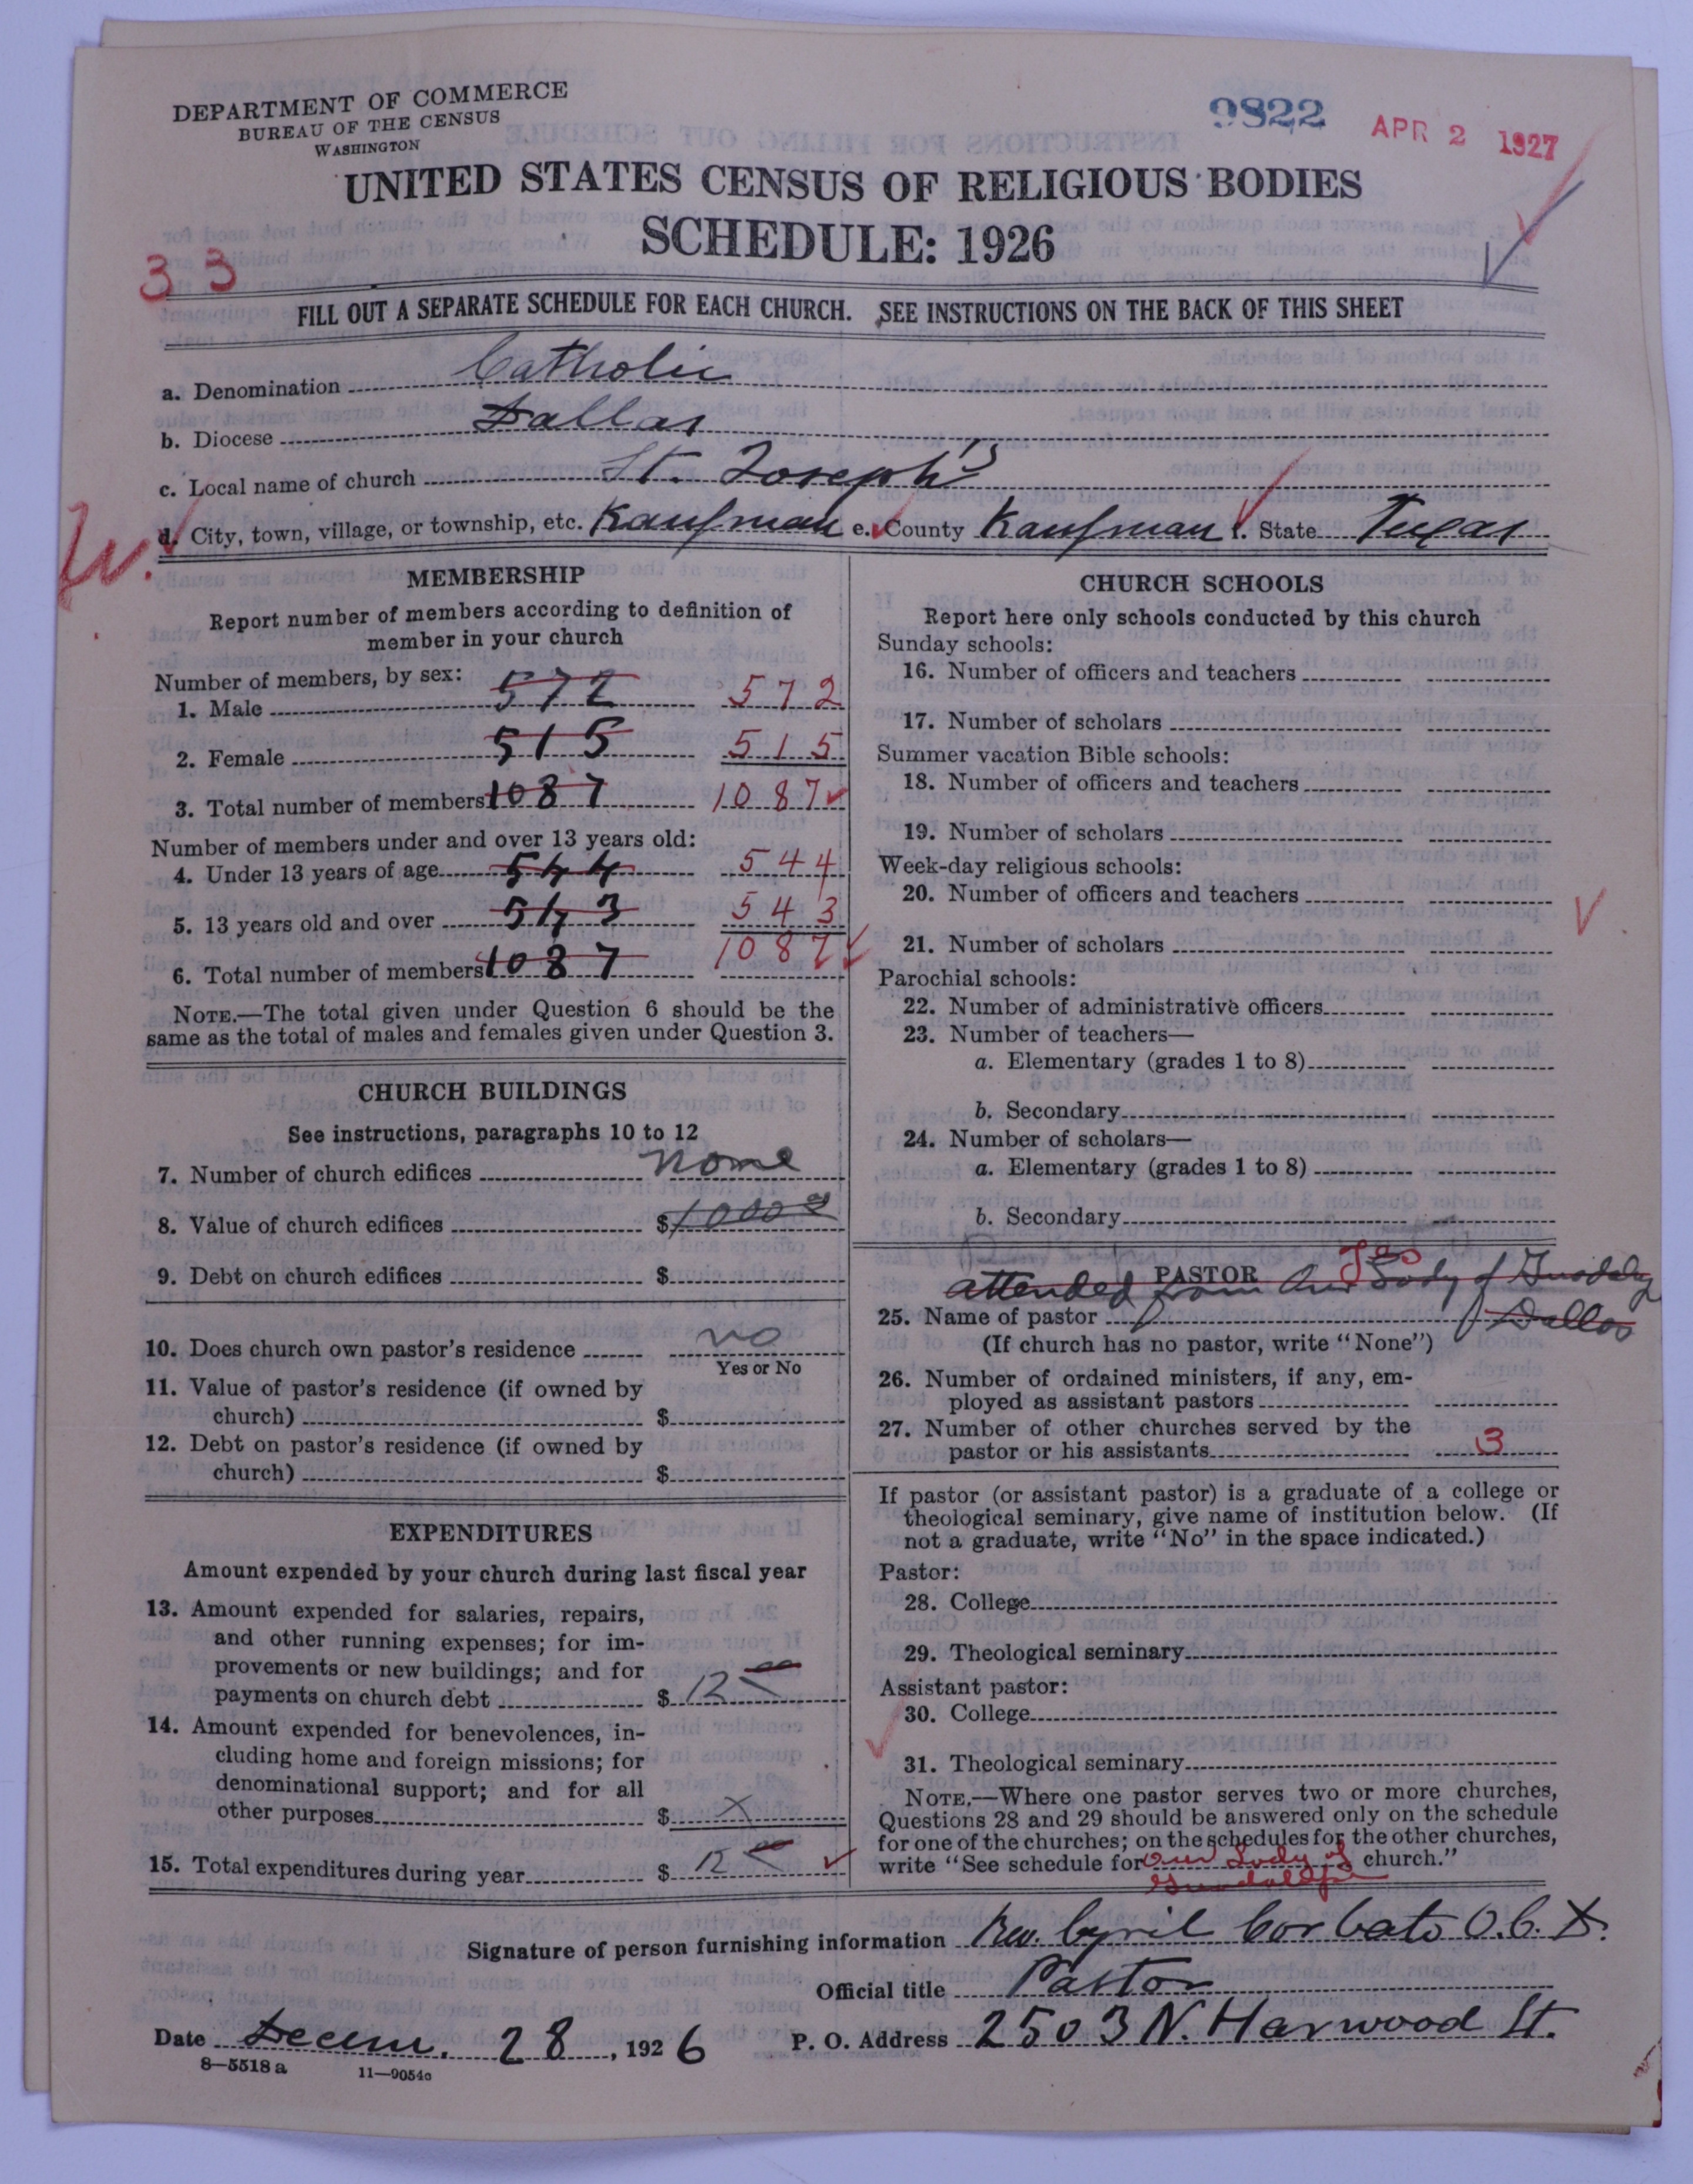 DEPARTMENT OF COMMERCE
BUREAU OF THE CENSUS
WASHINGTON
9822
APR 2 1927
UNITED STATES CENSUS OF RELIGIOUS BODIES
SCHEDULE: 1926
33
FILL OUT A SEPARATE SCHEDULE FOR EACH CHURCH. SEE INSTRUCTIONS ON THE BACK OF THIS SHEET
a. Denomination Catholic
b. Diocese Dallas
c. Local name of church St. Joseph's
d. City, town, village, or township, etc. Kaufman e. County Kaufman f. State Texas
MEMBERSHIP
Report number of members according to definition of
member in your church
Number of members, by sex:
1. Male 572 572
2. Female 515 515
3. Total number of members 1087 1087
Number of members under and over 13 years old:
4. Under 13 years of age 544 544
5. 13 years old and over 543 543
6. Total number of members 1087 1087
NOTE.—The total given under Question 6 should be the
same as the total of males and females given under Question 3.
CHURCH BUILDINGS
See instructions, paragraphs 10 to 12
7. Number of church edifices none
8. Value of church edifices $1000 00
9. Debt on church edifices $
10. Does church own pastor's residence no
Yes or No
11. Value of pastor's residence (if owned by
church) $
12. Debt on pastor's residence (if owned by
church) $
EXPENDITURES
Amount expended by your church during last fiscal year
13. Amount expended for salaries, repairs,
and other running expenses; for im-
provements or new buildings; and for
payments on church debt $ 12 00
14. Amount expended for benevolences, in-
cluding home and foreign missions; for
denominational support; and for all
other purposes $ X
15. Total expenditures during year $ 12 00
CHURCH SCHOOLS
Report here only schools conducted by this church
Sunday schools:
16. Number of officers and teachers
17. Number of scholars
Summer vacation Bible schools:
18. Number of officers and teachers
19. Number of scholars
Week-day religious schools:
20. Number of officers and teachers
21. Number of scholars
Parochial schools:
22. Number of administrative officers
23. Number of teachers—
a. Elementary (grades 1 to 8)
b. Secondary
24. Number of scholars—
a. Elementary (grades 1 to 8)
b. Secondary
PASTOR Yes
attended from Our Lady of
25. Name of pastor Dallas
(If church has no pastor, write "None")
26. Number of ordained ministers, if any, em-
ployed as assistant pastors
27. Number of other churches served by the
pastor or his assistants 3
If pastor (or assistant pastor) is a graduate of a college or
theological seminary, give name of institution below. (If
not a graduate, write "No" in the space indicated.)
Pastor:
28. College
29. Theological seminary
Assistant pastor:
30. College
31. Theological seminary
NOTE.—Where one pastor serves two or more churches,
Questions 28 and 29 should be answered only on the schedule
for one of the churches; on the schedules for the other churches,
write "See schedule for Our Lady of church."
Signature of person furnishing information Rev. Cyril Corbato O.C.D.
Official title Pastor
Date Decem. 28, 1926 P. O. Address 2503 N. Harwood St.
8—5518 a 11—9054c